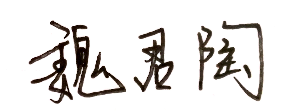 魏君陶